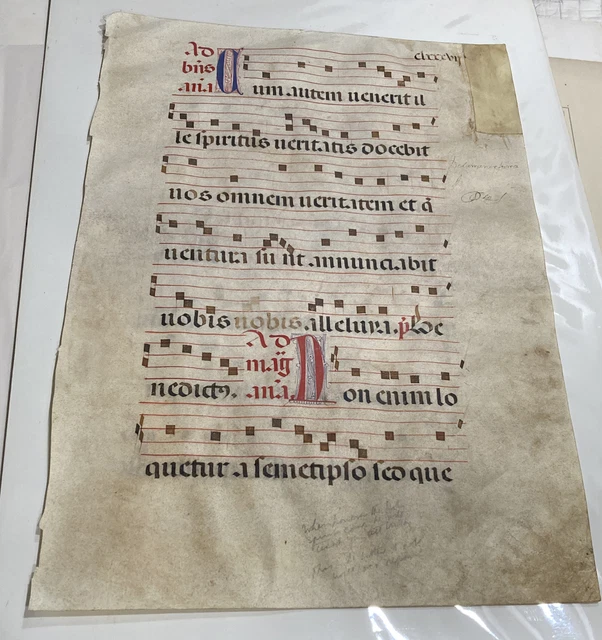 clxxxvij
Ad
bn̄s
ana Cum autem uenerit il
le spiritus ueritatis docebit
uos omnem ueritatem et q̄
uentura sunt annunciabit
uobis nobis alleluya. p̄s. Be
nedictꝰ. Ad
mag̃
ana Non enim lo
quetur a semetipso sed que